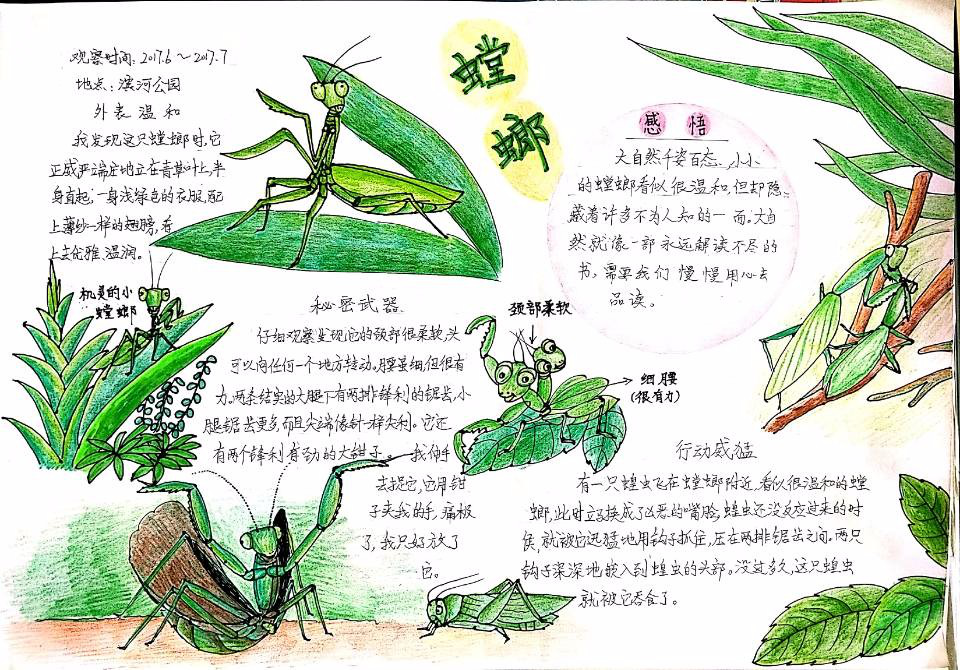 螳螂
观察时间：2017.6～2017.7
地点：滨河公园
外表温和
我发现这只螳螂时，它
正威严端庄地立在青草叶上，半
身直起，一身浅绿色的衣服，配
上薄纱一样的翅膀，看
上去优雅、温润。
机灵的小
螳螂
秘密武器
仔细观察发现它的颈部很柔软，头
可以向任何一个地方转动。腰虽细，但很有
力。两条结实的大腿下有两排锋利的锯齿，小
腿锯齿更多，而且尖端像针一样尖利。它还
有两个锋利有劲的大钳子。我伸手
去捉它，它用钳
子夹我的手，痛极
了，我只好放了
它。
颈部柔软
细腰
（很有力）
感悟
大自然千姿百态、小小
的螳螂看似很温和，但却隐
藏着许多不为人知的一面。大自
然就像一部永远解读不尽的
书，需要我们慢慢用心去
品读。
行动威猛
有一只蝗虫飞在螳螂附近，看似很温和的螳
螂，此时立刻换成了凶恶的嘴脸，蝗虫还没反应过来的时
侯，就被它迅猛地用钩子抓住，压在两排锯齿之间。两只
钩子深深地嵌入到蝗虫的头部。没过多久，这只蝗虫
就被它吞食了。